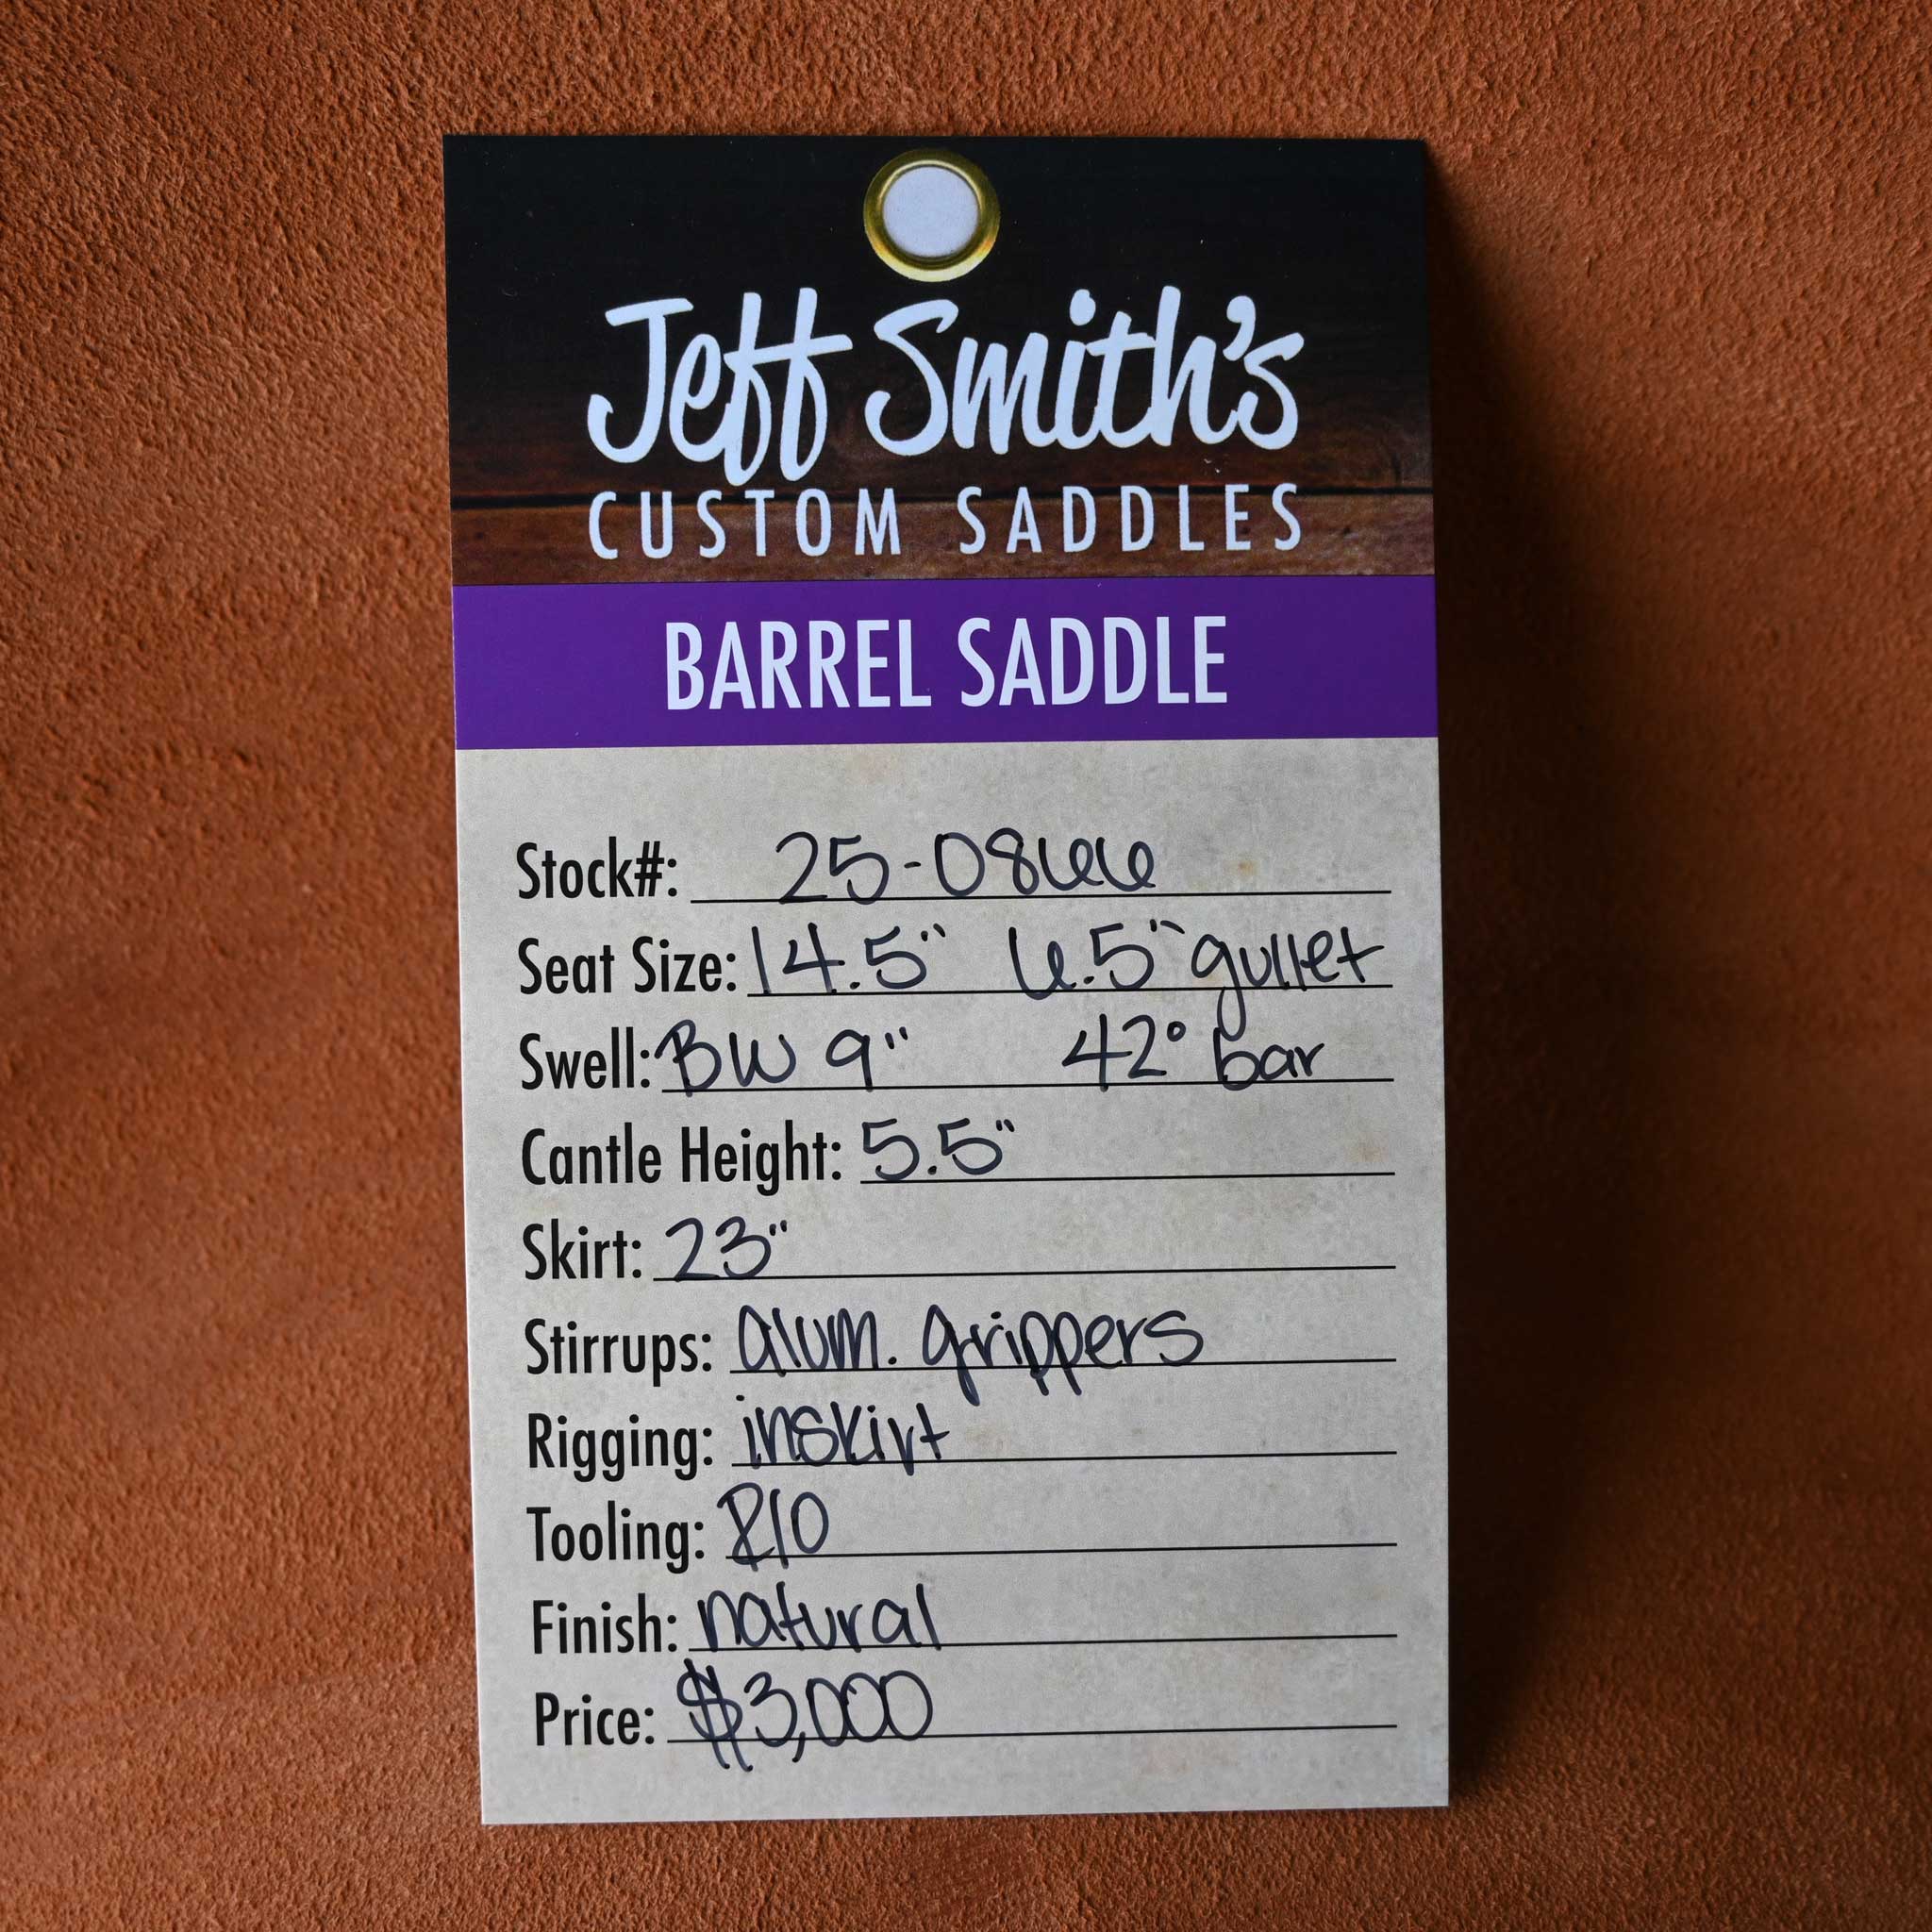 Jeff Smith's
CUSTOM SADDLES
BARREL SADDLE
Stock#: 25-0866
Seat Size: 14.5" 6.5" gullet
Swell: BW 9" 42° bar
Cantle Height: 5.5"
Skirt: 23"
Stirrups: alum. grippers
Rigging: inskirt
Tooling: R10
Finish: natural
Price: $3,000